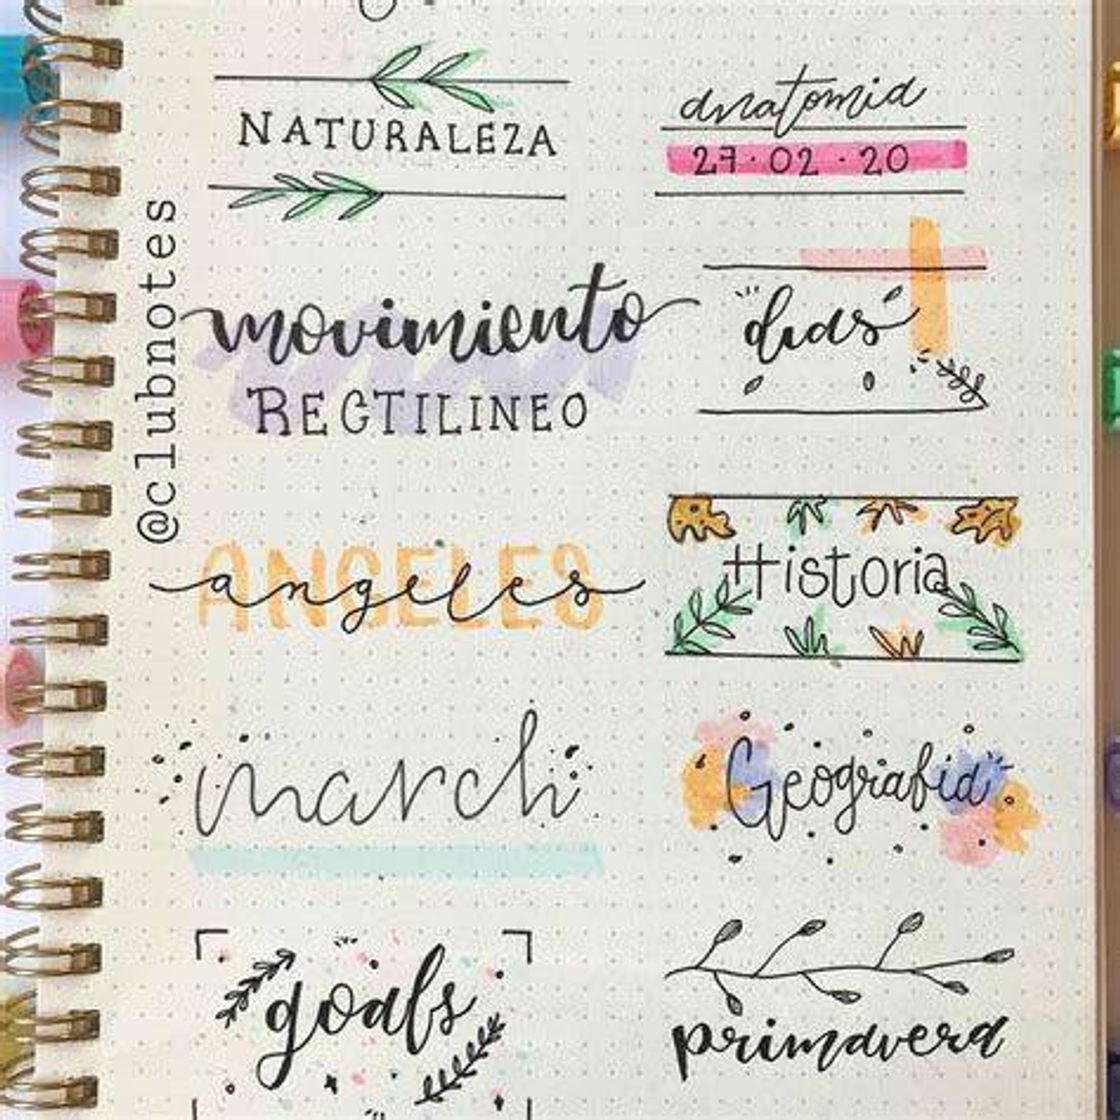 NATURALEZA
anatomia
27·02·20
@clubnotes
movimiento
RECTILINEO
dias
ANGELES
angeles
Historia
march
Geografia
goals
primavera